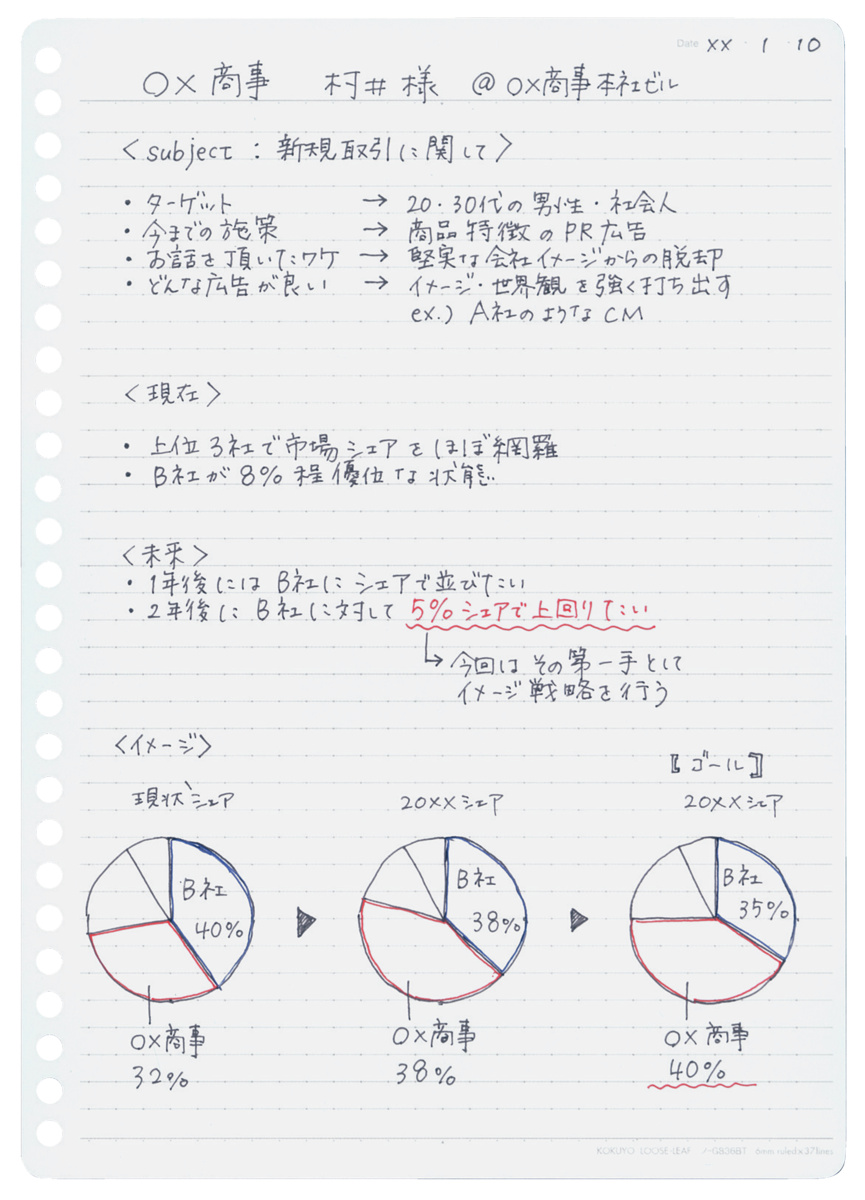 Date XX・1・10
○×商事 村井様 @○×商事本社ビル
〈subject：新規取引に関して〉
・ターゲット → 20・30代の男性・社会人
・今までの施策 → 商品特徴のPR広告
・お話を頂いたワケ → 堅実な会社イメージからの脱却
・どんな広告が良い → イメージ・世界観を強く打ち出す
ex.) A社のようなCM
〈現在〉
・上位3社で市場シェアをほぼ網羅
・B社が8%程優位な状態
〈未来〉
・1年後にはB社にシェアで並びたい
・2年後にB社に対して5%シェアで上回りたい
↳今回はその第一手として
イメージ戦略を行う
〈イメージ〉
【ゴール】
現状シェア 20XXシェア 20XXシェア
B社 B社 B社
40% 38% 35%
○×商事 ○×商事 ○×商事
32% 38% 40%
KOKUYO LOOSE-LEAF ノ-G836BT 6mm ruled×37lines